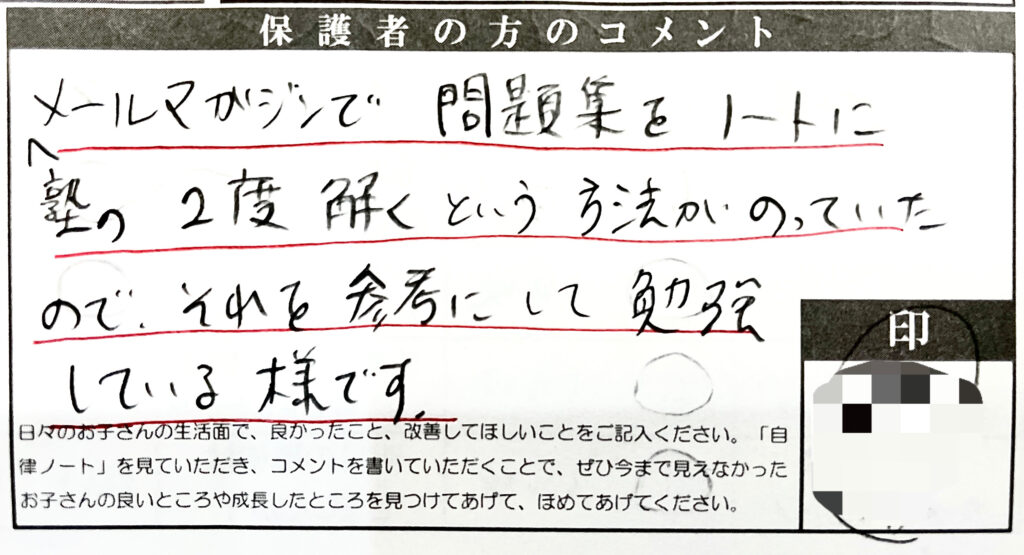 保護者の方のコメント
メールマガジンで 問題集を ノートに
塾の 2度 解くという 方法がのっていた
ので、それを参考にして 勉強
している 様です。
印
日々のお子さんの生活面で、良かったこと、改善してほしいことをご記入ください。「自
律ノート」を見ていただき、コメントを書いていただくことで、ぜひ今まで見えなかった
お子さんの良いところや成長したところを見つけてあげて、ほめてあげてください。